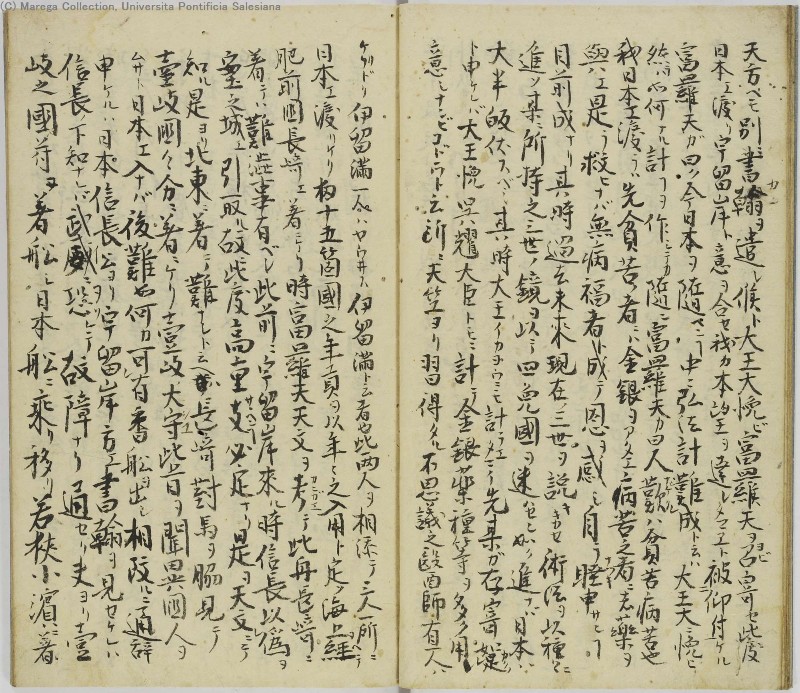 (C) Marega Collection, Universita Pontificia Salesiana
天方ヘモ別ニ書翰ヲ遣シ候ト大王大悦ビ富羅天ヲ召寄セ此度
日本エ渡り宇留岸ト意ヲ合セ我カ本望ヲ達シタマエト被仰付ケル
富羅天カ曰ク今日本ヲ随ヱニ中々弘法計難成トニハ大王大ニ悦ヒ
然ラハ何ケル計コヲ作ニ随ニ富羅天カ曰人ノ歎ハ貧苦病苦也
我日本エ渡ラハ先貧苦ノ者ニハ金銀ヲアタエ病苦之者ニハ薬ヲ
與エ是ヲ救ヒナバ無病福者ト成テ恩ヲ感シ自ラ
目前成ナリ其時過去未来現在ノ三世ヲ説キカセ術法ヲ以種々ニ
進ツ某所持之三世ノ鏡ヲ以テ四兎國ヲ迷セ如ク進ナバ日本ハ
大半皈伏スヘシ其時大王イカヨウニモ計ラヱニ先某カ存寄如此
ト申ケレバ大王悦異耀大臣トモニ計テ金銀薬種等ヲ多ク用
意シナンビコドウト云所ニ天竺ヨリ習得タル不思議之醫師有人ハ
ケリトリ伊留満一人ハヤウサス伊留満ト云者也此両人ヲ相添テ三人一所ニ
日本エ渡リケリ扨十五箇國之年貢ヲ以年々之入用ト定メ海上経テ
肥前國長崎エ着ニケリ時富羅天天文ヲ考テ此舟長崎ニ
着テハ難渋事有ベシ此前ニ宇留岸来ル時信長以偽ヲ
室之城エ引取ル故此度高重支必定ナリ是ヲ天文ニテ
知ル是ヨリ北東ニ着ニ難ナシト云長崎對馬ヲ脇見テ
壹岐國々分ニ着ニケリ壹岐大守此旨ヲ聞異國人ヲ
ムサト日本エ入ナバ後難也何カ可有番船ヲ出シ相改ルニ通辞
申ケルハ日本信長公ヨリ宇留岸方エ書翰ヲ見セケレハ
信長下知ナレハ武威ニ恐レテ故障ナリ通セリ夫ヨリ壹
岐之國苻ヲ着船シ日本船ニ乗リ移リ若狭小濱ニ着